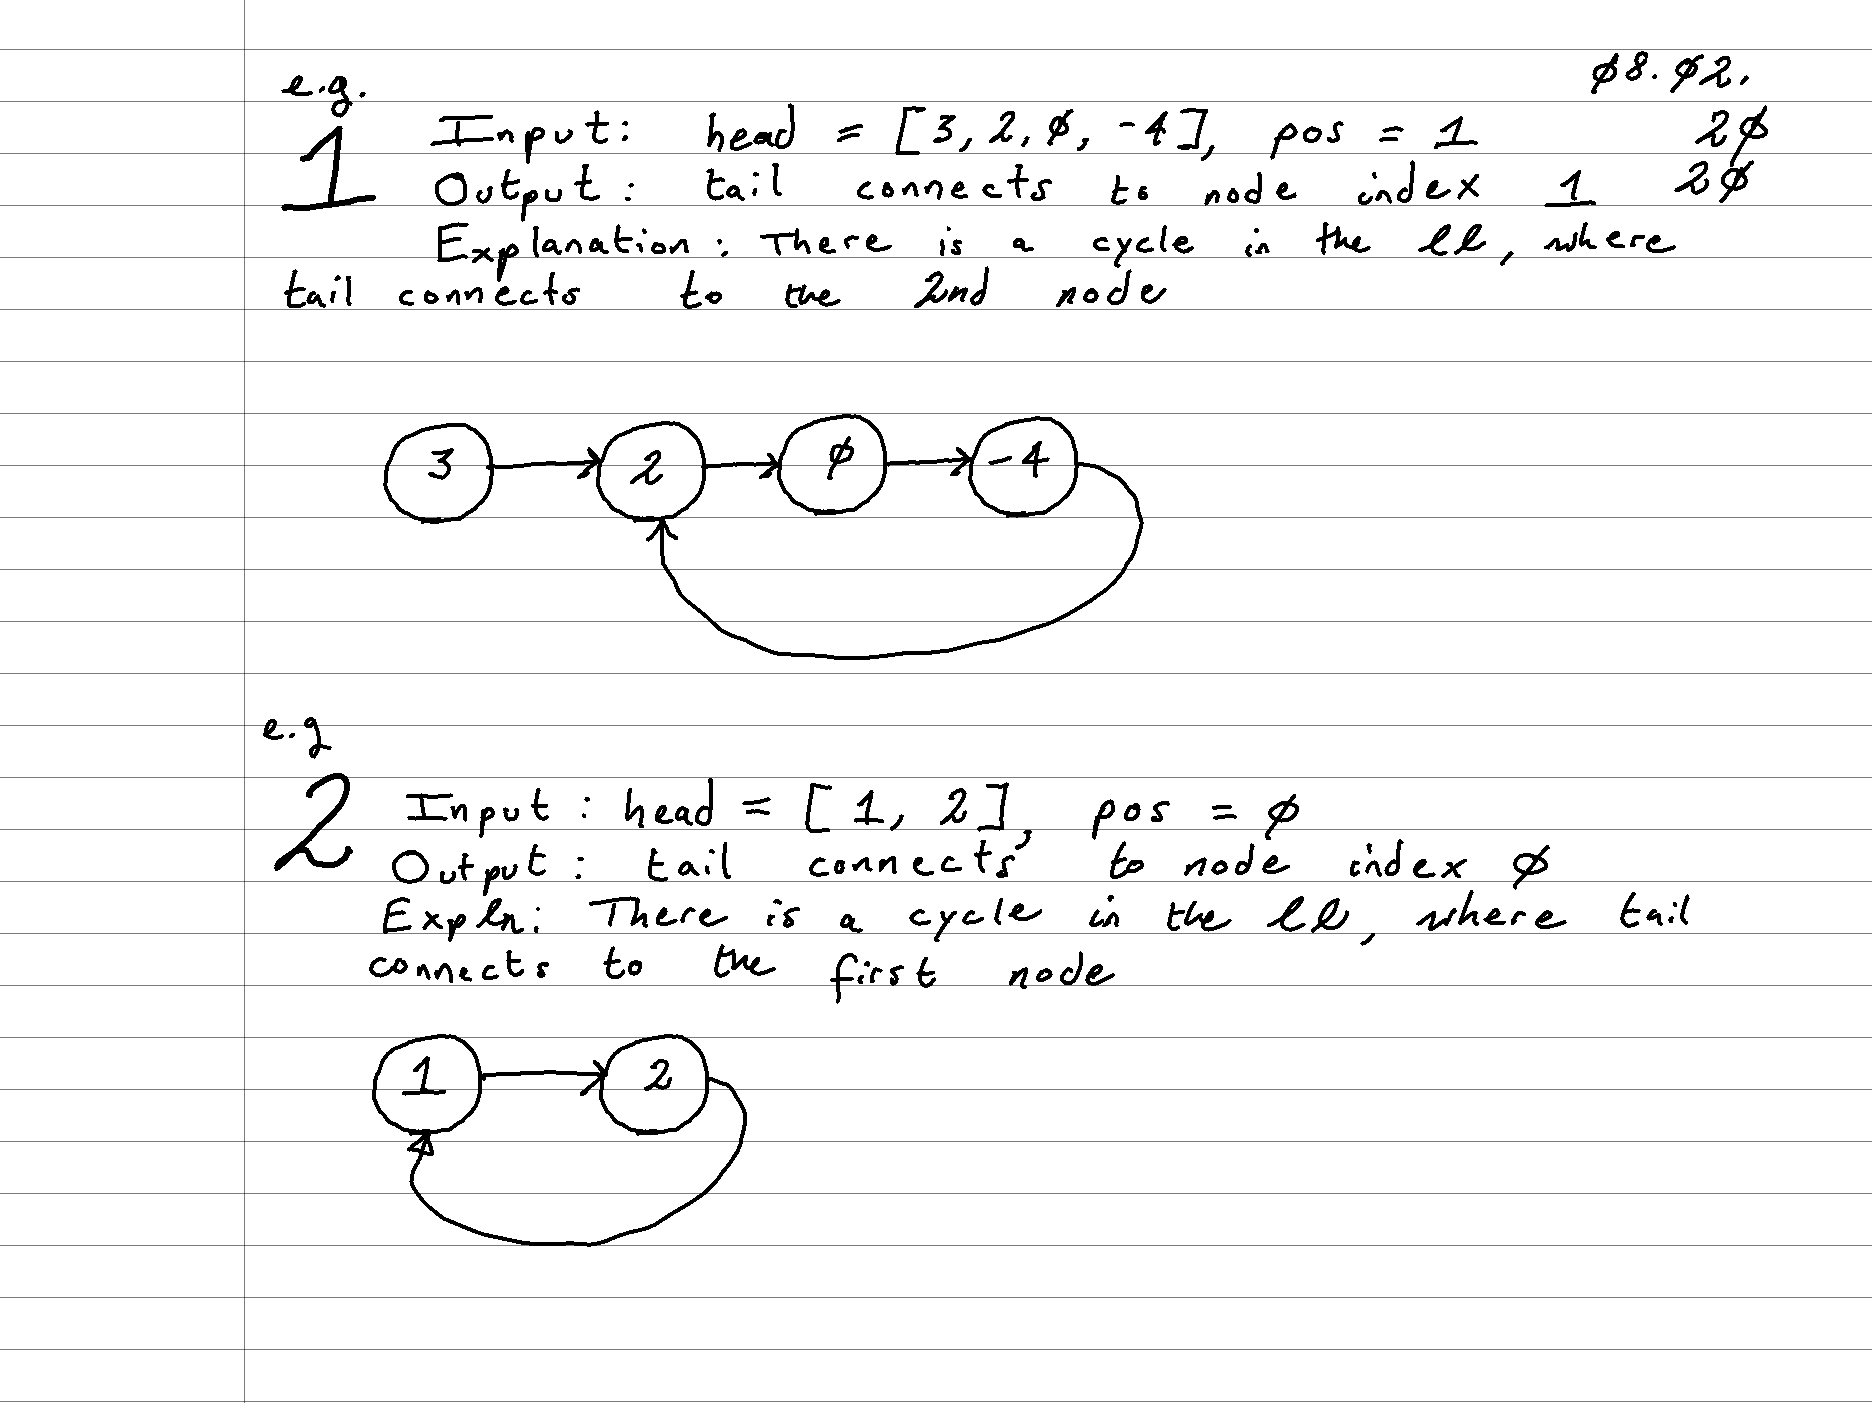 e.g. ø8.ø2.
1 Input: head = [3, 2, ø, -4], pos = 1 2ø
Output: tail connects to node index 1 2ø
Explanation: There is a cycle in the ll, where
tail connects to the 2nd node
3 2 ø -4
e.g
2 Input: head = [1, 2], pos = ø
Output: tail connects to node index ø
Expln: There is a cycle in the ll, where tail
connects to the first node
1 2